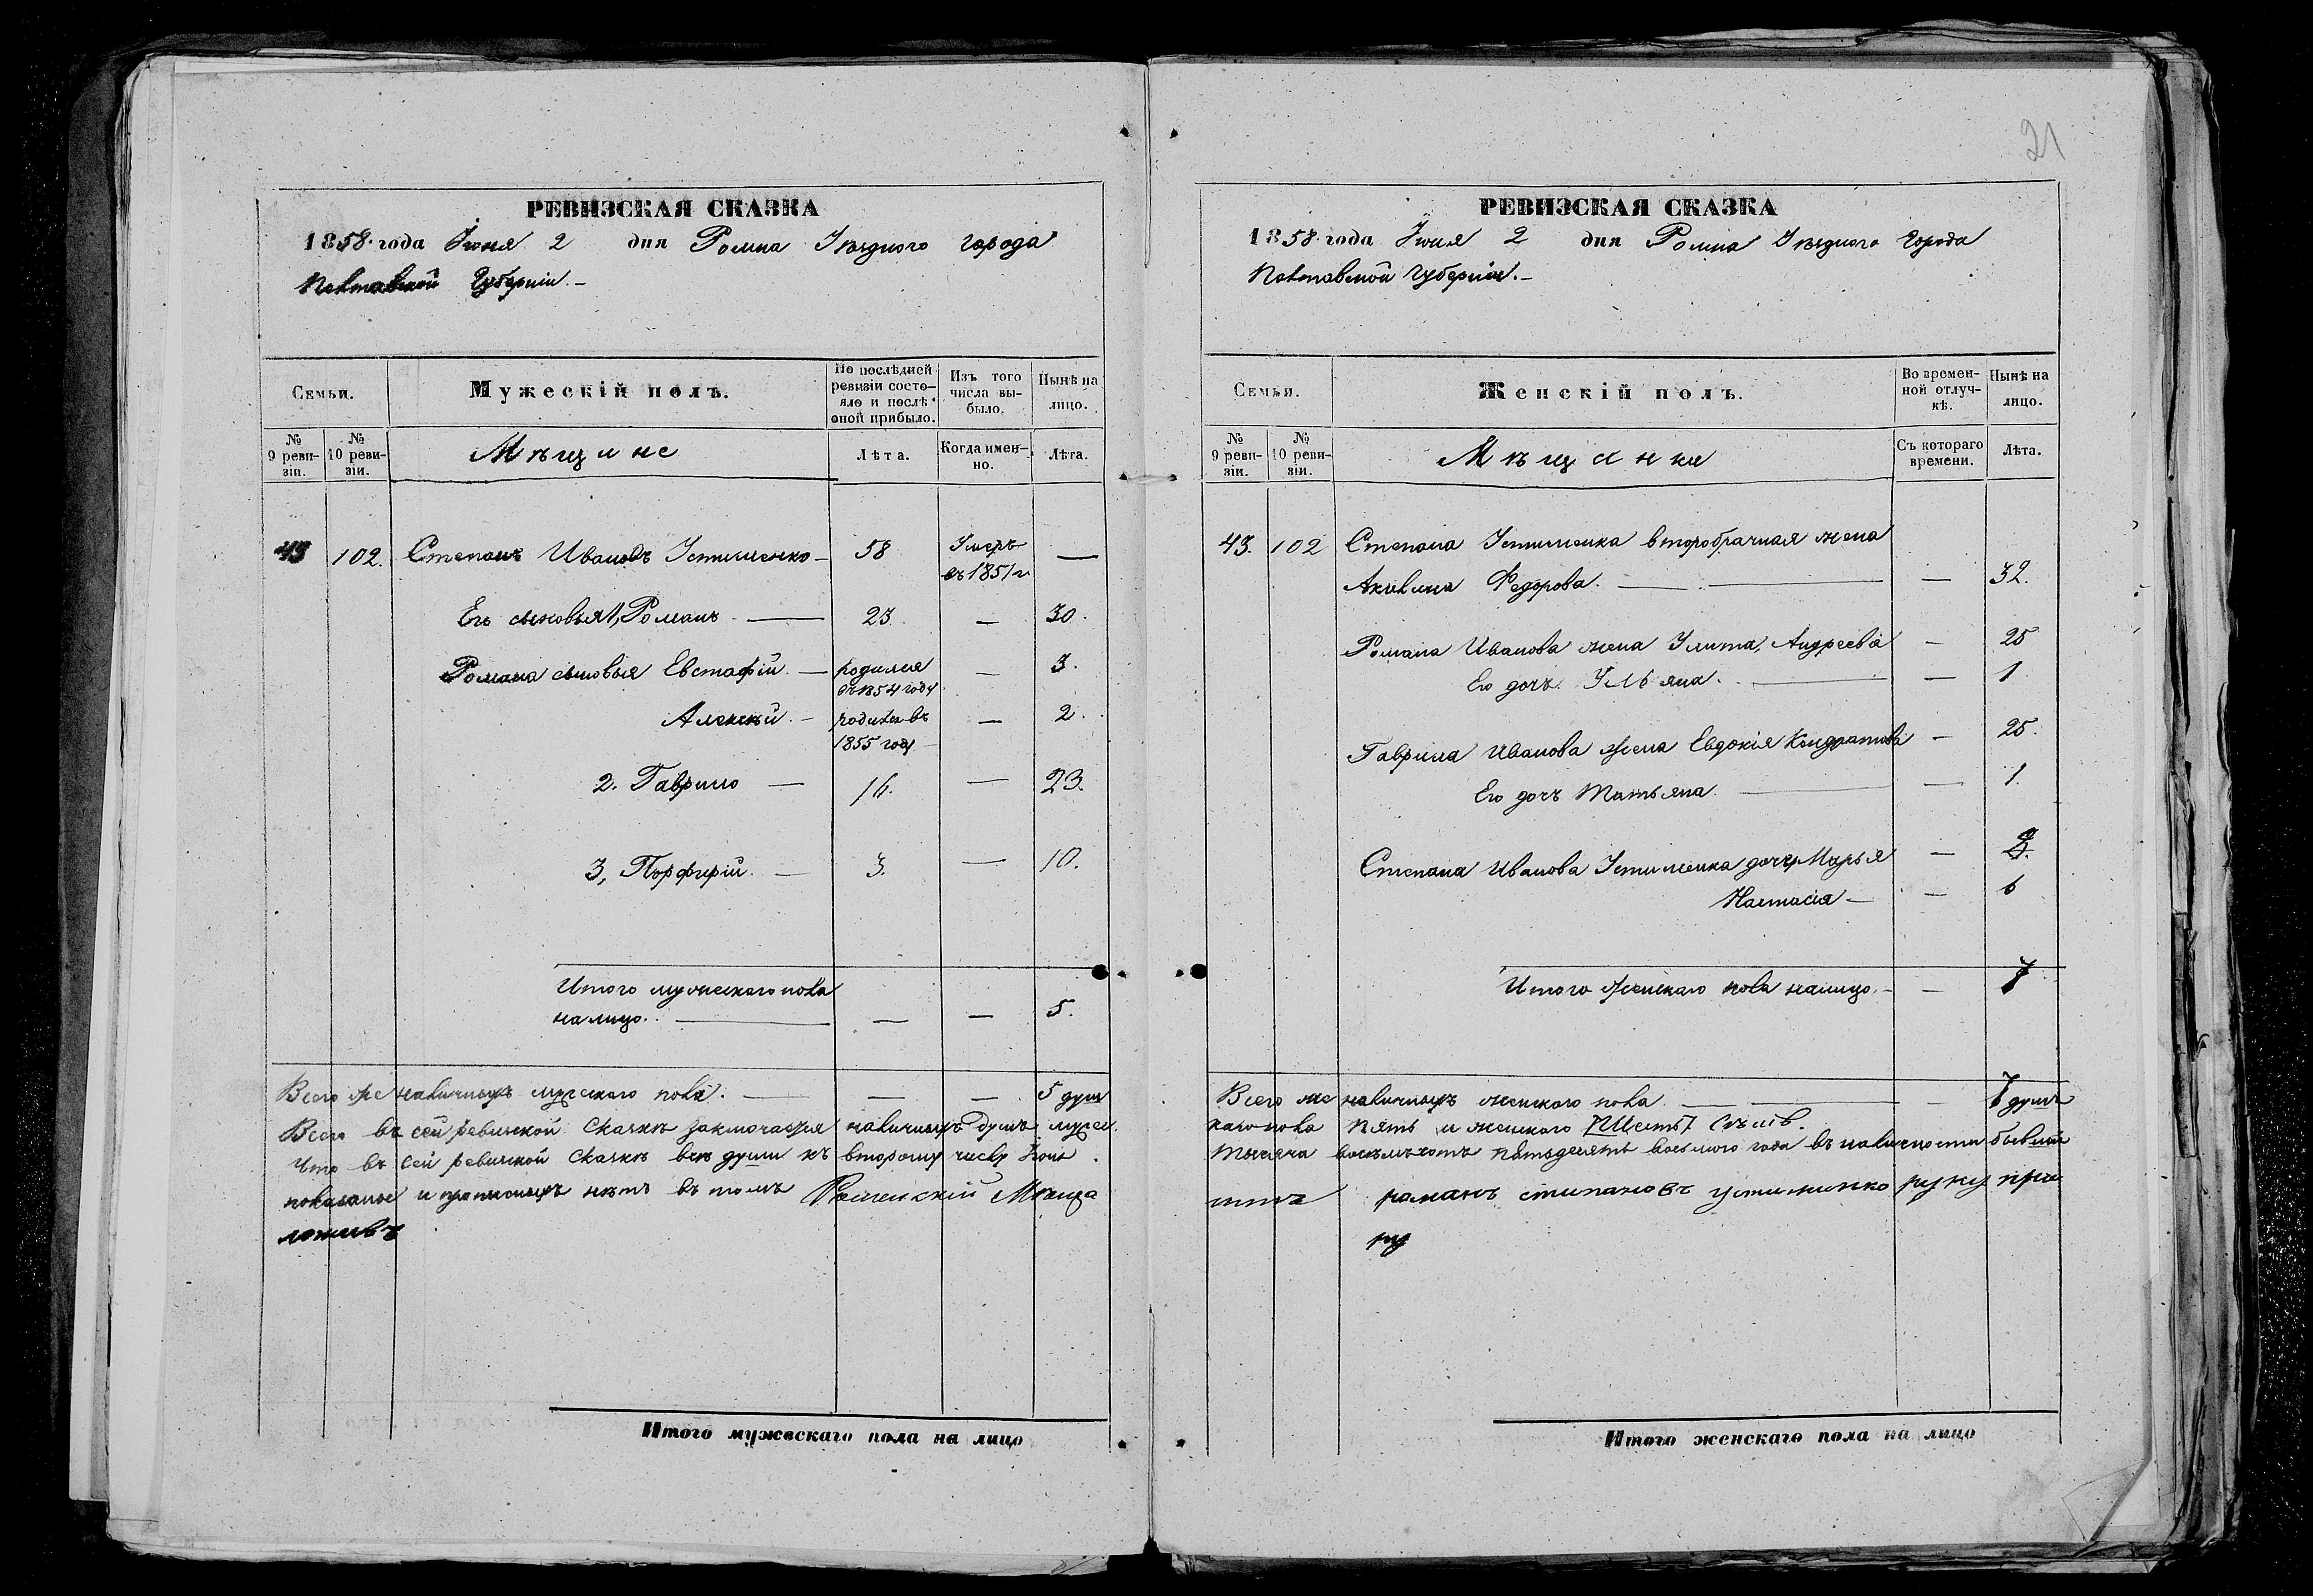 21
РЕВИЗСКАЯ СКАЗКА
1858 года Іюня 2 дня Ромна Уѣзднаго города
Полтавской Губерніи. –
Семьи.
Мужескій полъ.
По послѣдней ревизіи состо-
яло и послѣ оной прибыло.
Изъ того числа вы-
было.
Нынѣ на лицо.
№ 9 реви-
зіи.
№ 10 реви-
зіи.
Мѣщане
Лѣта.
Когда имен-
но.
Лѣта.
43 102. Степанъ Ивановъ Устименко – 58 Умеръ —
въ 1851 г.
Его сыновья 1, Романъ — 23. — 30.
Романа сыновья Евстафій. — родился — 3.
въ 1854 году
Алексѣй. – родился въ — 2.
1855 году
2. Гаврило — 16. — 23.
3, Порфирій. — 3. — 10.
Итого мужескаго пола
на лицо. — — — 5.
Всего же наличныхъ мужескаго пола. — — — 5 душ
Всего въ сей ревизской Сказкѣ заключается наличныхъ душъ мужес
Что въ сей ревизской Сказкѣ всѣ души къ второму числу Іюня
показаные и прописныхъ нѣтъ въ томъ Роменскій Мѣща
ложивъ
Итого мужескаго пола на лицо
РЕВИЗСКАЯ СКАЗКА
1858 года Іюня 2 дня Ромна Уѣзднаго Города
Полтавской Губерніи. –
Семьи.
Женскій полъ.
Во времен-
ной отлуч-
кѣ.
Нынѣ на лицо.
№ 9 реви-
зіи.
№ 10 реви-
зіи.
Мѣщанки
Съ котораго времени.
Лѣта.
43. 102 Степана Устименка второбрачная жена
Акилина Федорова. — — 32.
Романа Иванова жена Улита Андреева — 25
Его дочь Ульяна. — — 1
Гаврила Иванова жена Евдокія Кондратова — 25.
Его дочь Татьяна. — — 1.
Степана Иванова Устименка дочер Марья —
Настасія — — 6
Итого женскаго пола налицо. – — 7
Всего же наличныхъ женскаго пола — — 7 душъ
каго пола пять и женскаго
тысяча восемьсотъ пятьдесятъ восьмого года въ наличности бывшій
нинъ романъ стипановъ устименко руку при
ру
Итого женскаго пола на лицо